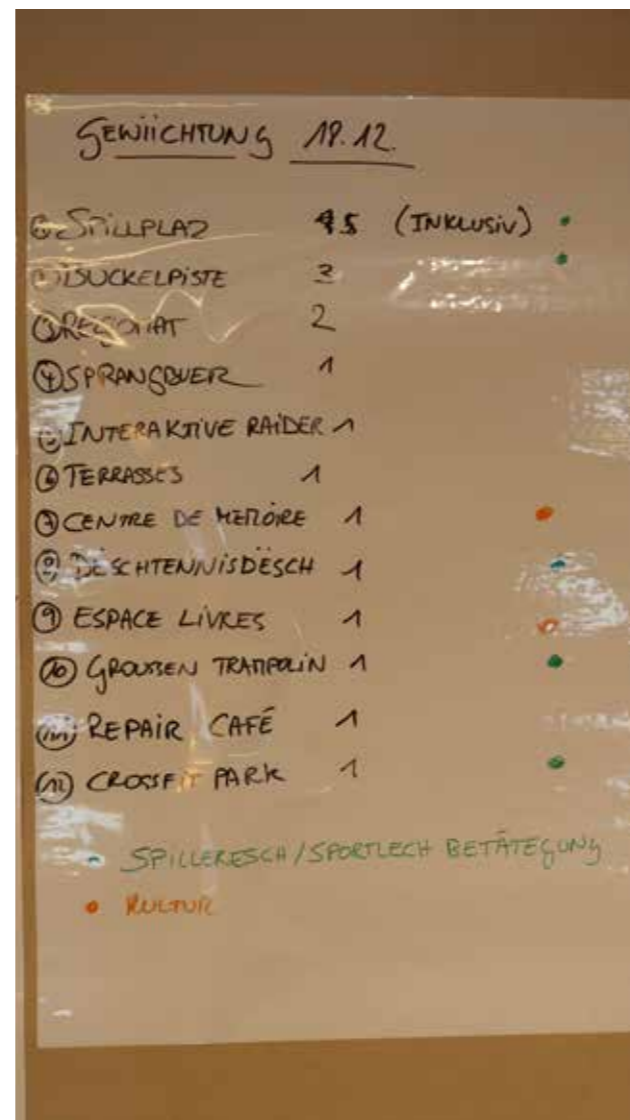 GEWIICHTUNG 18.12.
SPILLPLAZ 5 (INKLUSIV)
BUCKELPISTE 3
2
④ SPRANGBUER 1
INTERAKTIVE RAIDER 1
⑥ TERRASSES 1
⑦ CENTRE DE MEMOIRE 1
⑧ DËSCHTENNISDËSCH 1
⑨ ESPACE LIVRES 1
⑩ GROUSSEN TRAMPOLIN 1
⑪ REPAIR CAFÉ 1
⑫ CROSSFIT PARK 1
SPILLERESCH/SPORTLECH BETÄTEGUNG
KULTUR